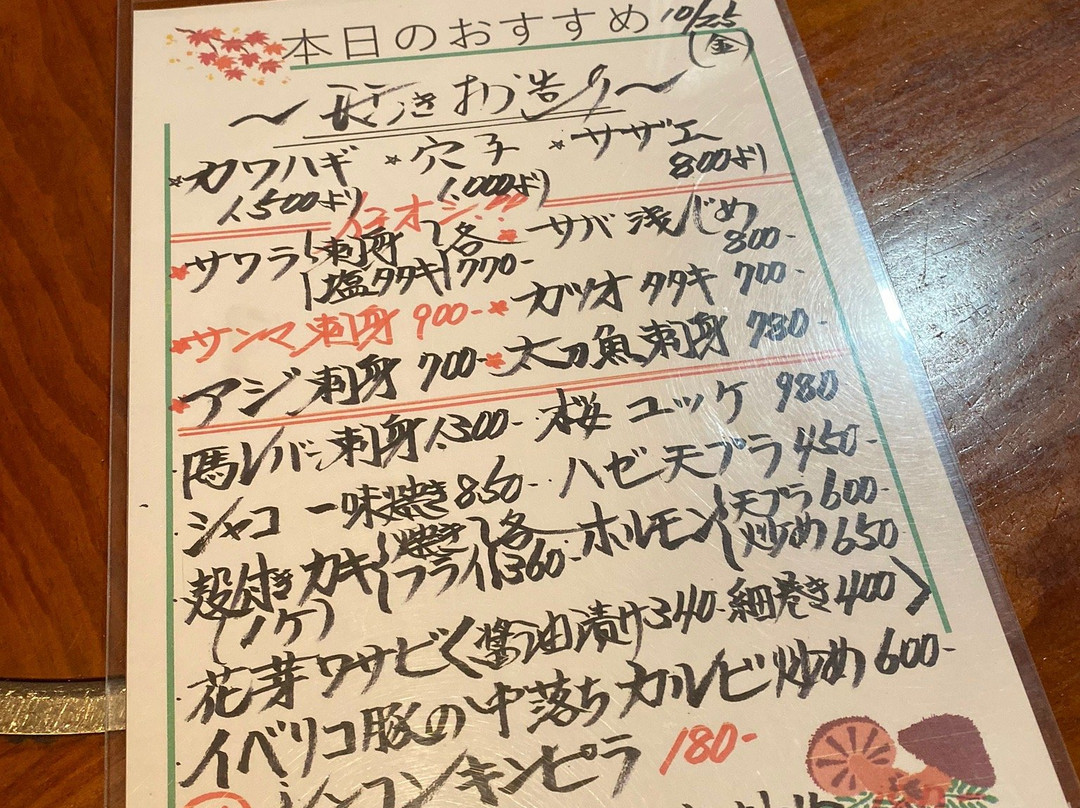 本日のおすすめ 10/25
(金)
〜活き お造り〜
カワハギ 穴子 サザエ
1,500より 1,000より 800より
イチオシ!!
サワラ 刺身 各 サバ 浅じめ
塩タタキ 770- 800-
サンマ刺身 900- カツオ タタキ 700-
アジ刺身 700- 太刀魚刺身 730-
馬レバー刺身 1,300- 桜ユッケ 980
シャコ 一味焼き 850- ハゼ天プラ 450-
殻付きカキ 焼き 各 ホルモン 天プラ 600-
(1ケ) フライ 360- 炒め 650
花芽ワサビ 醤油漬け 340- 細巻き 400
イベリコ豚の中落ちカルビ炒め 600-
キンピラ 180-